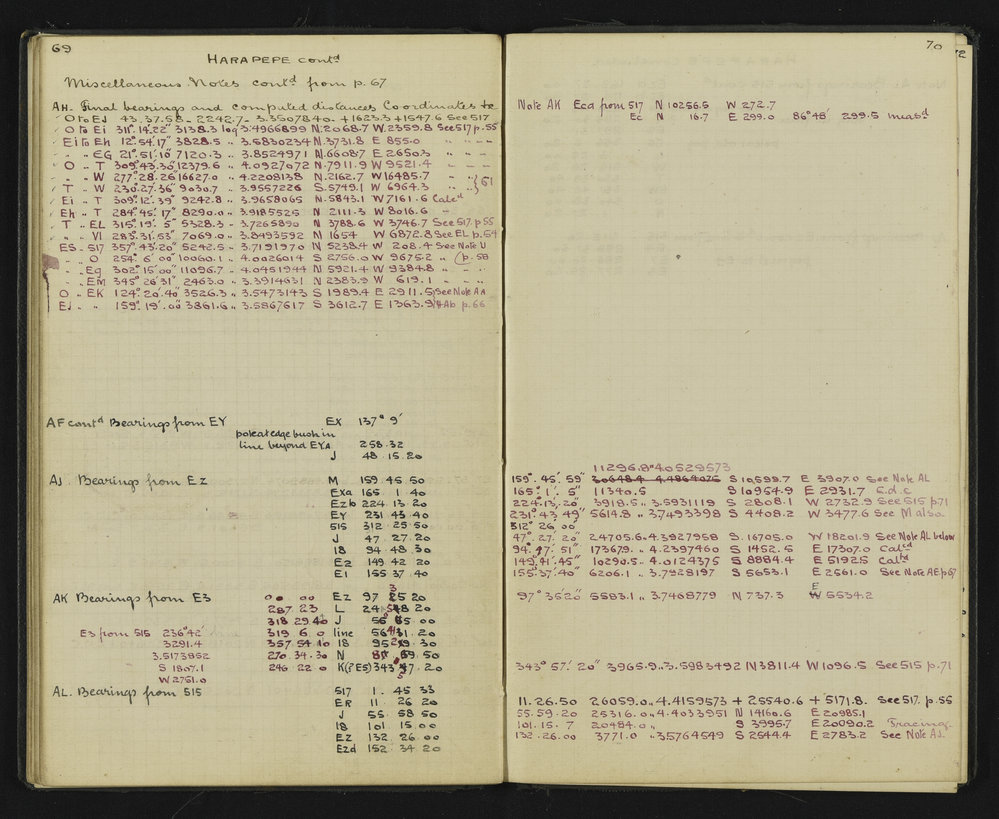 69
HARAPEPE contd
Miscellaneous Notes contd from p.67
AH. Final bearings and computed distances Coordinates &c
O to EJ 43.37.58 - 2242.7 - 3.3507840 + 1623.3 + 1547.6 See 517
O to Ei 311°.14'.22" 3138.3 log 3.4966899 N.2068.7 W.2359.8 See 517 p.55
Ei to Eh 12°.54'.17" 3828.5 " 3.5830234 N.3731.8 E 855.0 " " - -
" " EG 21°.51'.10" 7120.3 " 3.8524971 N.6608.7 E 2650.3 " " - -
O " T 309°.43'.30" 12379.6 " 4.0927072 N.7911.9 W 9521.4 " - -
" " W 277°.28'.26" 16627.0 " 4.2208138 N.2162.7 W16485.7 "
T " W 230.27.36" 9030.7 " 3.9557226 S.5749.1 W 6964.3 " } 61
Ei " T 309°.12'.39" 9242.8 " 3.9658065 N.5843.1 W7161.6 Calcd
Eh " T 284°.45'.17" 8290.0 " 3.9185525 N 2111.3 W 8016.6 "
T " EL 315°.19'.5" 5328.3 - 3.7265890 N 3788.6 W 3746.7 See 517. p.55
" " VI 283°.31'.53" 7069.0 " 3.8493592 N 1654 W 6872.8 See EL p.54
ES - 517 357°.43'.20" 5242.5 " 3.7191970 N 5238.4 W 208.4 See Note U
" " O 254° 6' 00" 10060.1 " 4.0026014 S 2756.0 W 9675.2 " (p.58
" Eg 302°.15'.00" 11096.7 " 4.0451944 N 5921.4 W 9384.8 " - "
" " EM 345° 26' 31" 2463.0 " 3.3914631 N 2383.9 W 619.1 " - "
O " EK 124°.20'.40" 3526.3 " 3.5473143 S 1989.4 E 2911.5 See Note AA
EJ " " 159°.19'.00" 3861.6 " 3.5867617 S 3612.7 E 1363.9 & Ab p.66
AF contd Bearings from EY EX 137° 9'
pole at edge bush in
line beyond EYA 258.32
J 48.15.20
AJ. Bearings from EZ M 159.45.50
EXa 165.1.40
EZb 224.13.20
EY 231 43.40
515 312.25.50
J 47.27.20
18 94.48.30
E2 149.42.20
E1 155.37.40
AK Bearings from E3 00 00 EZ 97 25 20
287.23 L 24 48 20
318 29 40 J 56 05.00
E3 from 515 236°42' 319 6 0 line 56 31.20
3291.4 357 54 10 18 95 19 30
3.5173852 270.34.30 N 69.50
S 1807.1 246.22.0 K(?E5) 343 47.20
W2751.0
AL. Bearings from 515 517 1.45 33
ER 11.26 20
J 55.58 50
18 101.15.00
EZ 132.26.00
EZd 152.34.20
70
Note AK Ecd from 517 N 10256.5 W 272.7
Ec N 16.7 E 299.0 86°48' 299.5 measd
11296.8 " 4.0529573
159°.45'.59" 30648.4 4.4864025 S 10599.7 E 3907.0 See Note AL
165°.1'.5" 11340.5 S 10954.9 E 2931.7 E.d.c
224°.13'.20" 3918.5 " 3.5931119 S 2808.1 W 2732.9 See 515 p71
231°.43'.49" 5614.8 " 3.7493398 S 4408.2 W 3477.6 See M also
312° 26' 00"
47°.27'.20" 24705.6 - 4.3927958 S.16705.0 W 18201.9 See Note AL below
94°.47'.51" 17367.9 " 4.2397460 S 1452.5 E 17307.0 Calcd
149°.41'.45" 10290.5 " 4.0124375 S 8884.4 E 5192.5 Calcd
155°.37'.40" 6206.1 " 3.7928197 S 5653.1 E 2561.0 See Note AE p.67
E
97°35'20" 5583.1 " 3.7468779 N 737.3 W 5534.2
343° 57'.20" 3965.9 - 3.5983492 N 3811.4 W 1096.5 See 515 p.71
11.26.50 26059.0 " 4.4159573 + 25540.6 + 5171.8. See 517. p.55
55.59.20 25316.0 " 4.4033951 N 14160.6 E 20985.1
101.15.7 20484.0 " S 3995.7 E 20090.2 Tracing
132.26.00 3771.0 " 3.5764549 S 2544.4 E 2783.2 See Note AJ.